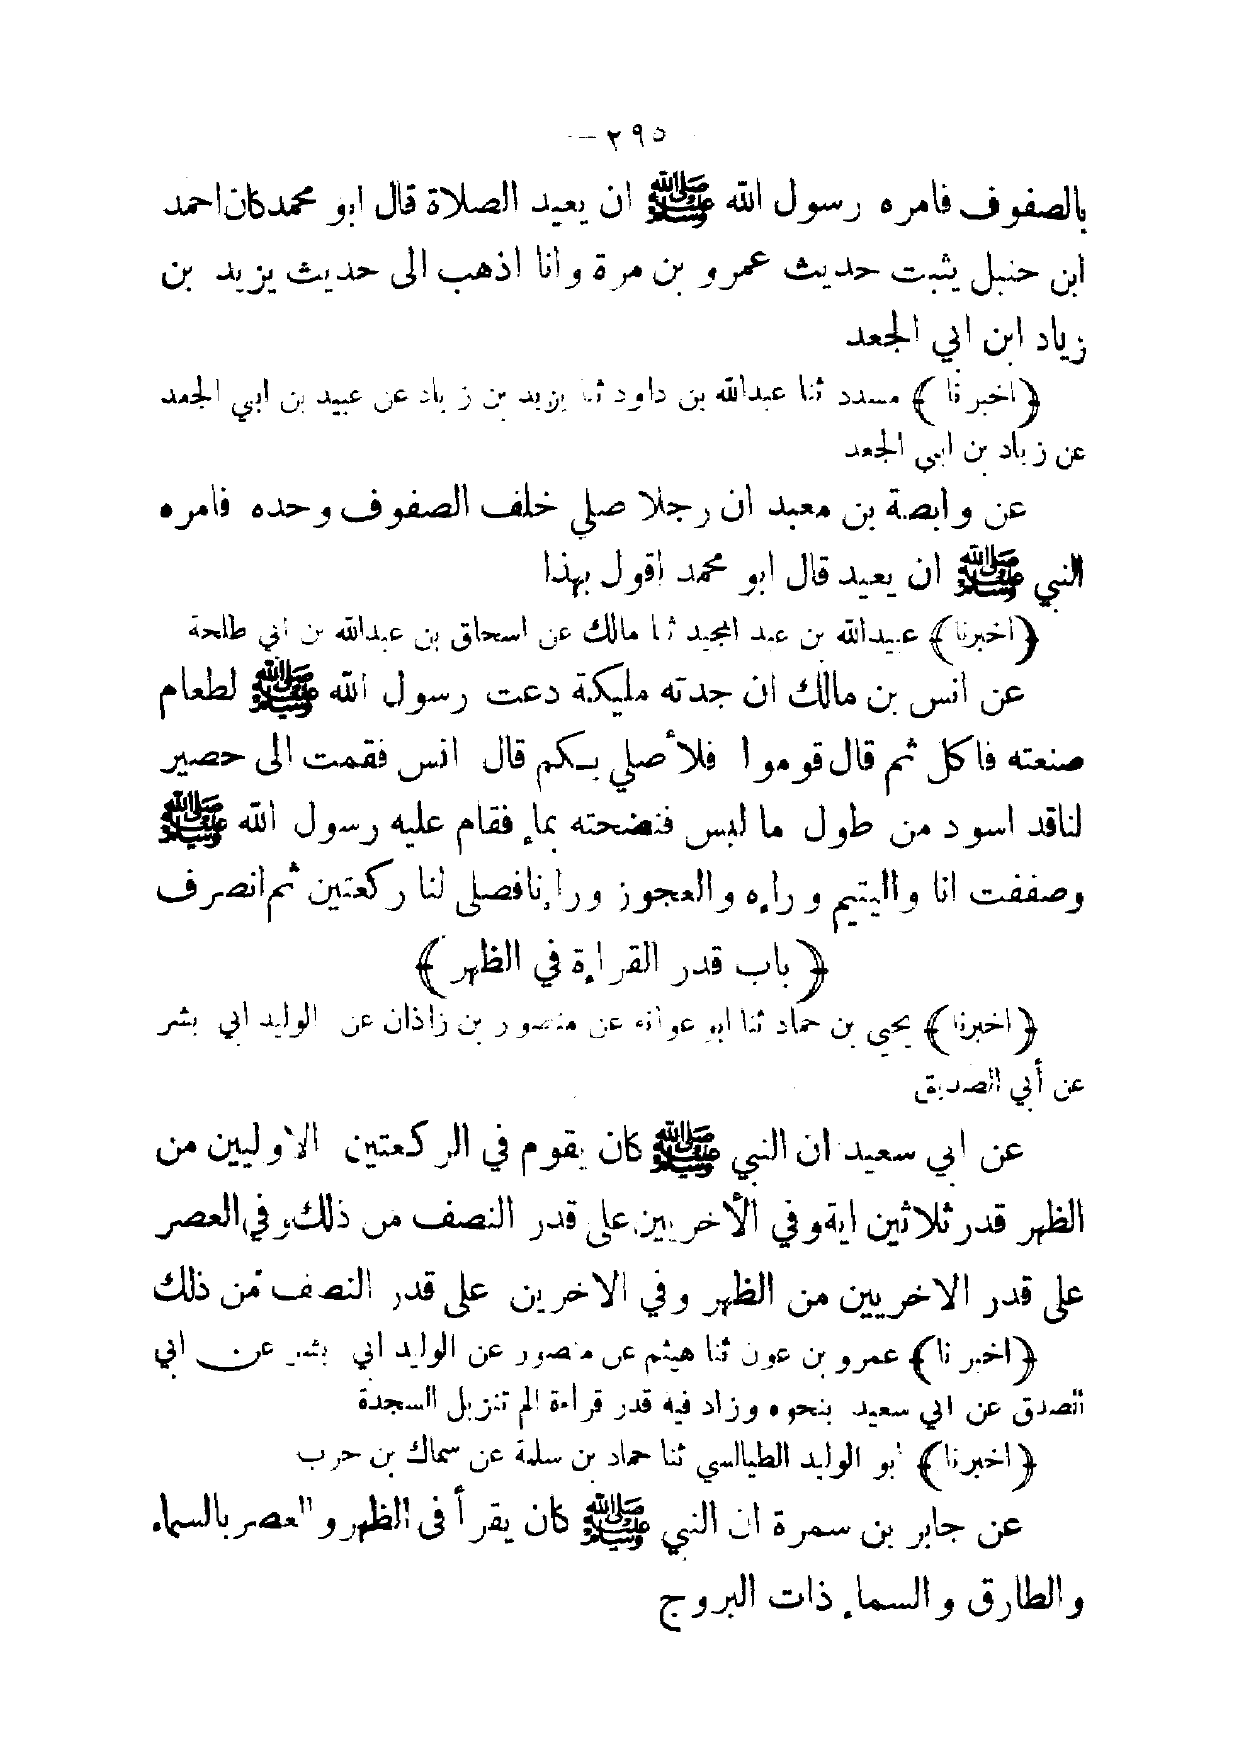 —٢٩٥
بالصفوف فامره رسول الله ﷺ ان يعيد الصلاة قال ابو محمدكان احمد
ابن حنبل يثبت حديث عمرو بن مرة وانا اذهب الى حديث يزيد بن
زياد ابن ابي الجعد
﴿اخبرنا﴾ مسدد ثنا عبدالله بن داود ثنا يزيد بن زياد عن عبيد بن ابي الجعد
عن زياد بن ابي الجعد
عن وابصة بن معبد ان رجلا صلي خلف الصفوف وحده فامره
النبي ﷺ ان يعيد قال ابو محمد اقول بهذا
﴿اخبرنا﴾ عبيدالله بن عبد المجيد ثنا مالك عن اسحاق بن عبدالله بن ابي طلحة
عن انس بن مالك ان جدته مليكة دعت رسول الله ﷺ لطعام
صنعته فاكل ثم قال قوموا فلأصلي بكم قال انس فقمت الى حصير
لناقد اسود من طول ما لبس فنضحته بماء فقام عليه رسول الله ﷺ
وصففت انا واليتيم وراءه والعجوز وراءنافصلى لنا ركعتين ثم انصرف
﴿باب قدر القراءة في الظهر﴾
﴿اخبرنا﴾ يحيى بن حماد ثنا ابو عوانه عن منصور بن زاذان عن الوليد ابي بشر
عن أبي الصديق
عن ابي سعيد ان النبي ﷺ كان يقوم في الركعتين الاوليين من
الظهر قدر ثلاثين اية وفي الأخريين على قدر النصف من ذلك وفي العصر
على قدر الاخريين من الظهر وفي الاخرين على قدر النصف من ذلك
﴿اخبرنا﴾ عمرو بن عون ثنا هيثم عن منصور عن الوليد ابي بشر عن ابي
الصدق عن ابي سعيد بنحوه وزاد فيه قدر قراءة الم تنزيل السجدة
﴿اخبرنا﴾ ابو الوليد الطيالسي ثنا حماد بن سلمة عن سماك بن حرب
عن جابر بن سمرة ان النبي ﷺ كان يقرأ في الظهر والعصر بالسماء
والطارق والسماء ذات البروج